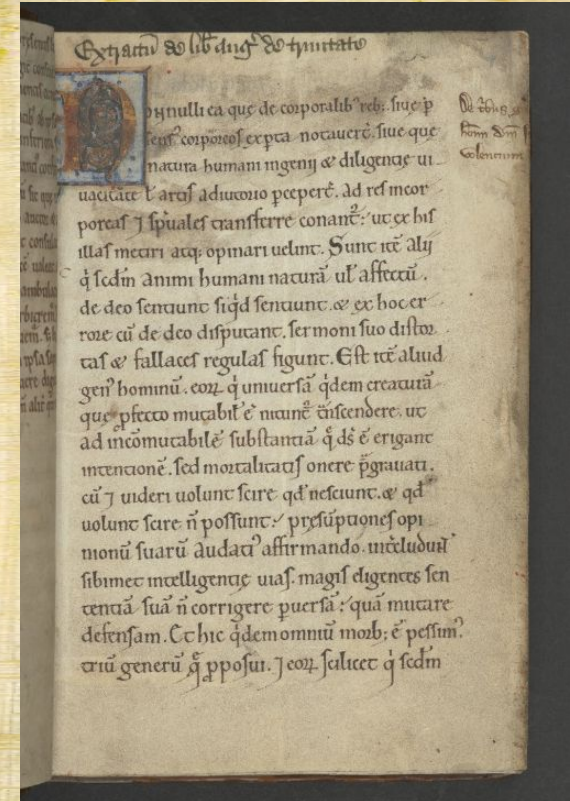 Extractū de lib̄ aug̛ de trinitate
Nonnulli ea que de corporalib᷒ reb; siue p̄
sens᷒ corporeos expta notauerē. siue que
natura humani ingenij & diligentię ui
uacitate ł artis adiutorio ꝑceperē. ad res incor
poreas ⁊ sp̄uales transferre conant᷒: ut ex his
illas metiri atq; opinari uelint. Sunt itē alij
q̇ scdm̄ animi humani naturā ul̛ affectū.
de deo sentiunt siq̇d sentiunt. & ex hoc er
rore cū de deo disputant. sermoni suo distor
tas & fallaces regulas figunt. Est itē aliud
gen᷒ hominū. eoꝝ q̇ uniuersā q̇dem creaturā
quę ꝓfecto mutabil̛ ē nitunt᷒ t̄nscendere. ut
ad incōmutabilē substantiā q̄ d̄s ē erigant
intentionē. sed mortalitatis onere p̄grauati.
cū ⁊ uideri uolunt scire qd̛ nesciunt. & qd̛
uolunt scire n̄ possunt: pręsūptiones opi
nionū suarū audati᷒ affirmando. int̄cludunt
sibimet intelligentię uias. magis eligentes sen
tentiā suā n̄ corrigere ꝑuersā: quā mutare
defensam. Et hic q̇dem omniū morb; ē pessim᷒
triū generū q̄ ꝓposui. ⁊ eoꝝ scilicet q̇ scdm̄